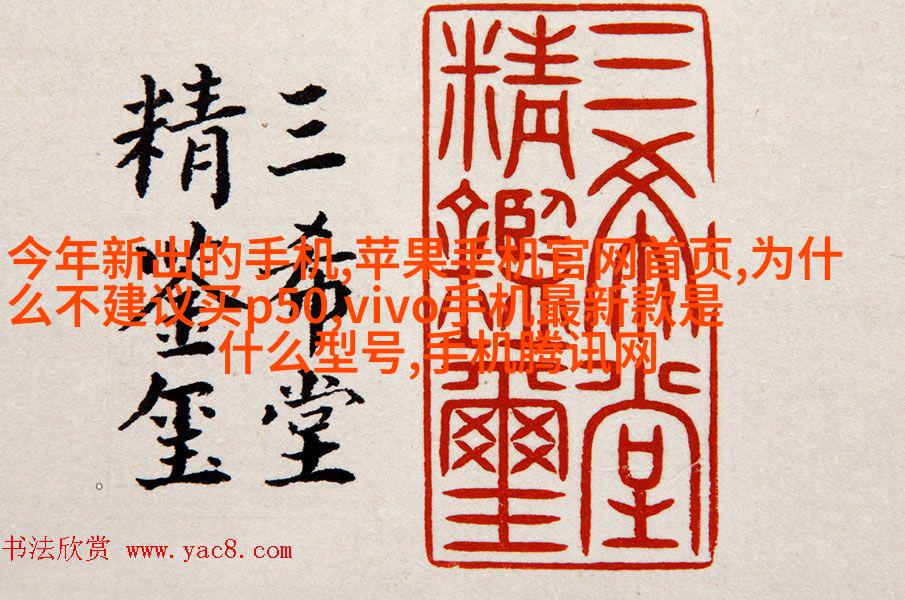 三希堂
精鉴玺
三希堂
精鑑璽
今年新出的手机,苹果手机官网首页,为什
么不建议买p50,vivo手机最新款是
什么型号,手机腾讯网
书法欣赏 www.yac8.com